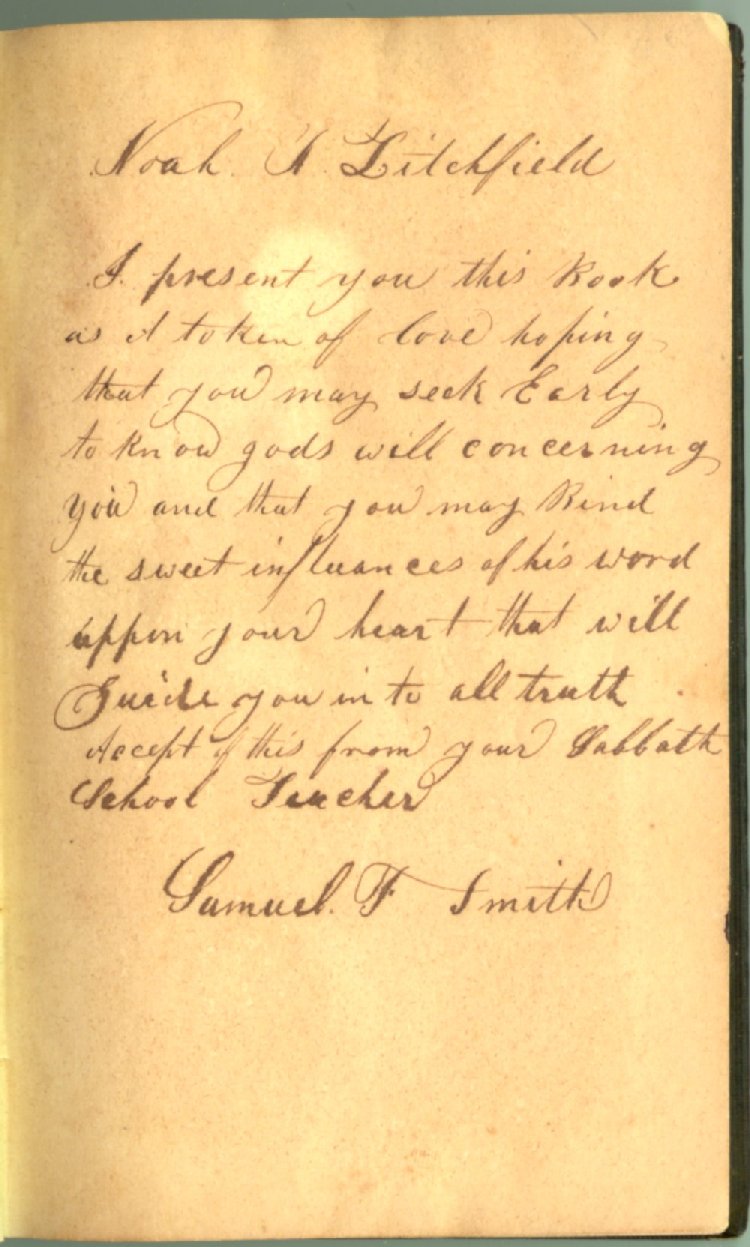 Noah. A. Litchfield
I. present you this Book
as A token of love hoping
that you may seek Early
to know gods will concerning
you and that you may
the sweet influances of his word
uppon your heart that will
Guide you in to all truth
Accept of this from your Sabbath
School Teacher
Samuel. F Smith